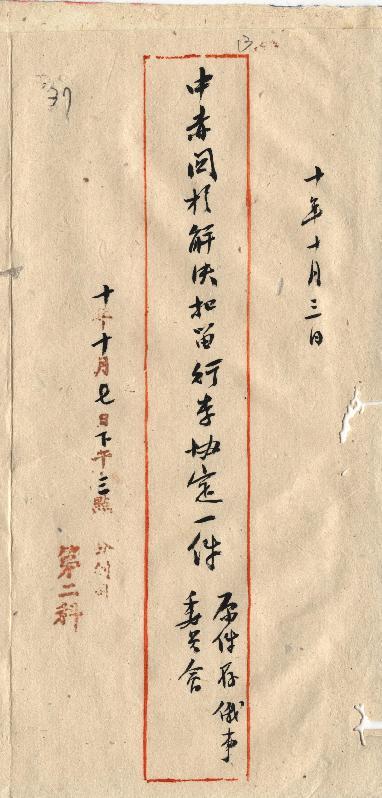 十年十月三日
中赤関於解决扣留行李协定一件
原件存俄事
委員會
十年十月七日下午三點
第二科
37